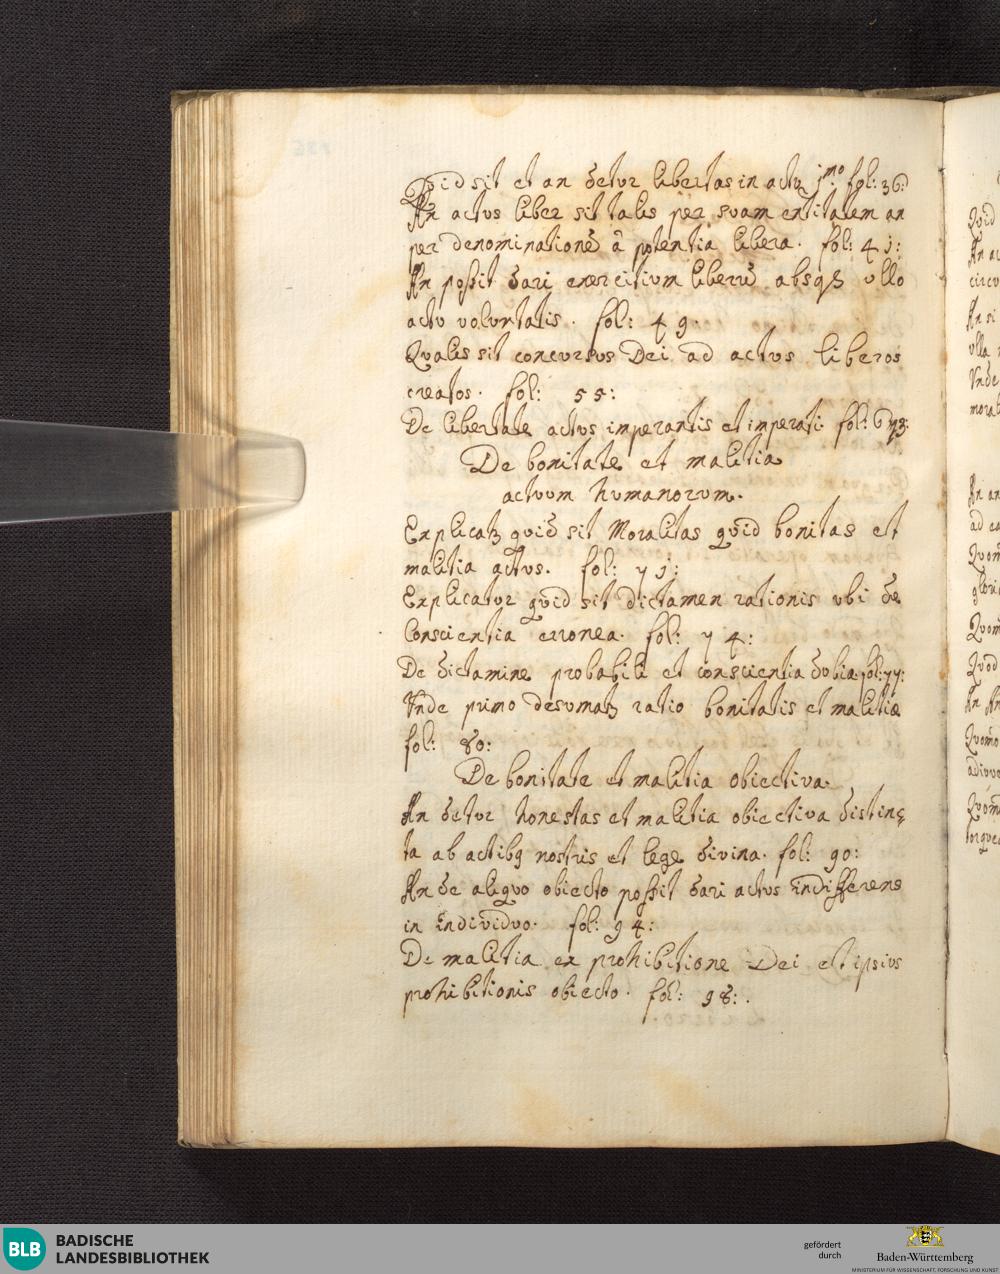 Quid sit et an detur libertas in actu jmo fol: 36
An actus liber sit talis per suam entitatem an
per denominationē à potentia libera. fol: 4j:
An possit dari exercitium liberū absqz ullo
actu voluntatis. fol: 49.
Qualis sit concursus Dei ad actus liberos
creatos. fol: 55:
De libertate actus imperantis et imperati fol:
De bonitate et malitia
actuum humanorum.
Explicatz quid sit Moralitas quid bonitas et
malitia actus. fol: 7j:
Explicatur quid sit dictamen rationis ubi de
Conscientia erronea. fol: 74:
De dictamine probabili et conscientia dubia fol: 77:
Unde primo desumatz ratio bonitatis et malitiæ
fol: 80:
De bonitate et malitia obiectiva.
An detur honestas et malitia obiectiva distinc
ta ab actibq nostris et lege divina. fol: 90:
An de aliquo obiecto possit dari actus indifferens
in individuo. fol: 94:
De malitia ex prohibitione Dei et ipsius
prohibitionis obiecto. fol: 98:.
Quid
An ac
circu
An si
ulla
Unde
moral
An an
ad
Quom
gloria
Quom
Quod
An An
Quomo
adiuva
Quom
torque
BLB BADISCHE
LANDESBIBLIOTHEK
gefördert
durch
Baden-Württemberg
MINISTERIUM FÜR WISSENSCHAFT, FORSCHUNG UND KUNST